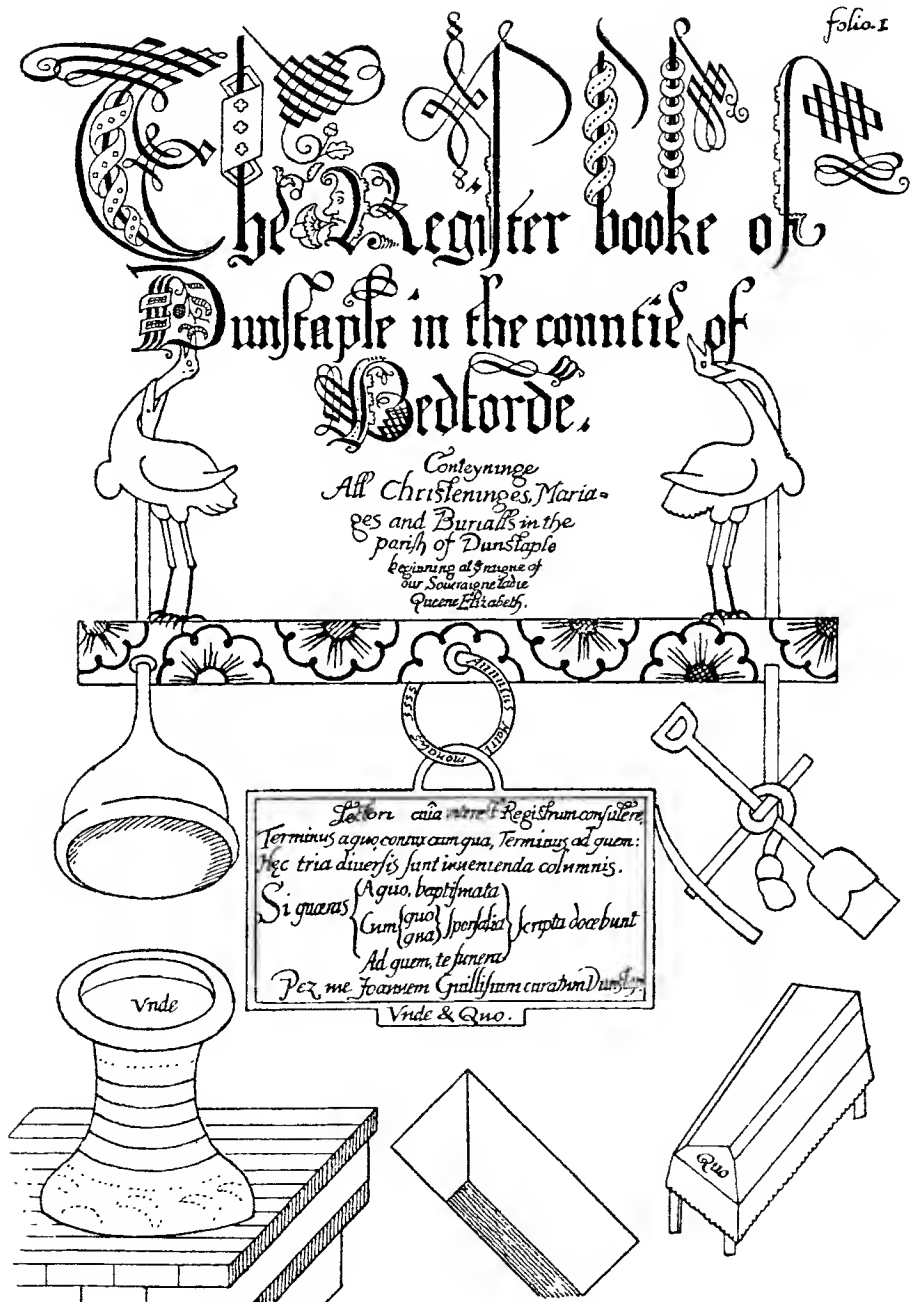 folio.1
The Register booke of
Dunstaple in the countie of
Bedforde.
Conteyninge
All Christeninges, Maria=
ges and Burialls in the
parish of Dunstaple
beginning at yͤ raigne of
our Soueraigne Ladie
Queene Elizabeth.
vinculus Matri
monalis
Lectori cuia interest Registrum consulere,
Terminus a quo, cum qua, Terminus ad quem:
Hęc tria diuersis sunt inuenienda columnis.
Si quæras
A quo, baptismata
Cum quo qua sponsalia scripta docebunt
Ad quem, te funera
Per me Joannem curatum
Vnde & Quo.
Vnde
Quo